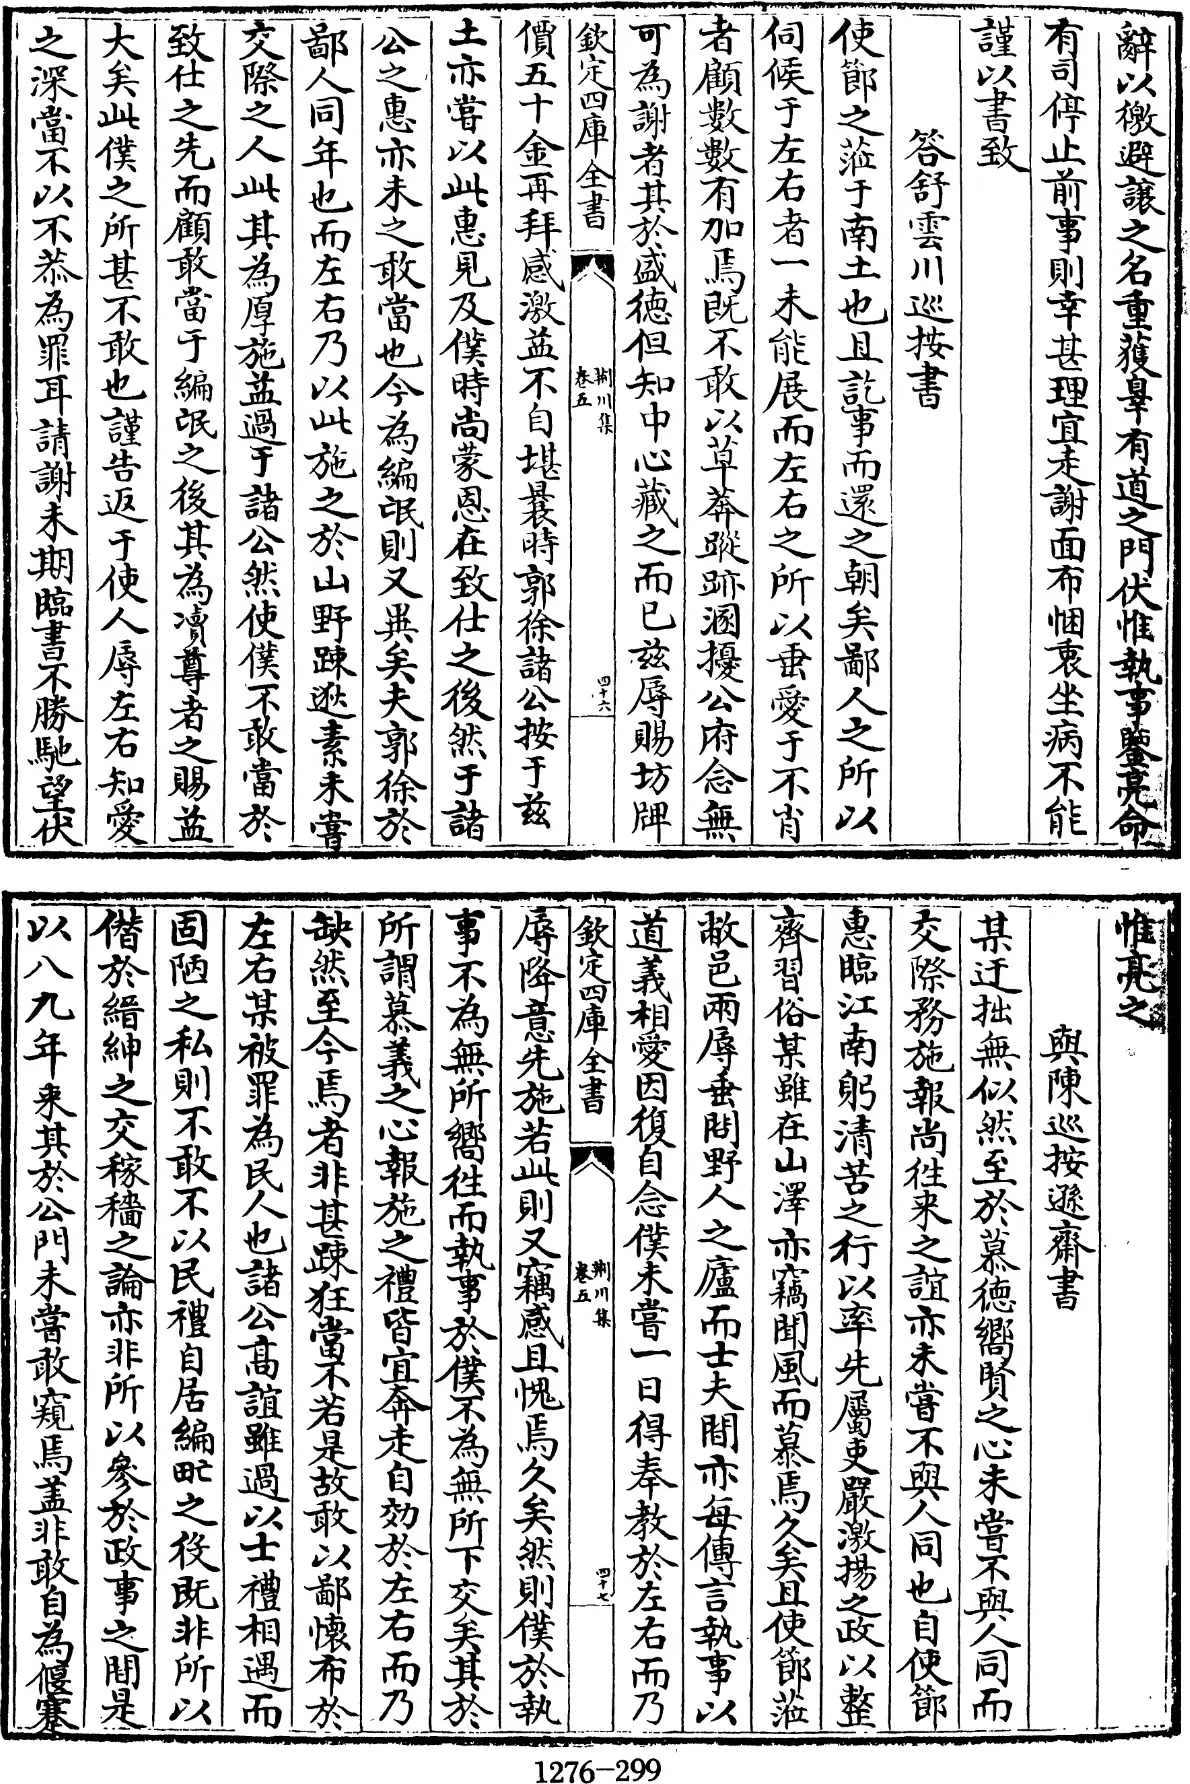 辭以徼避讓之名重獲辠有道之門伏惟執事鑒亮命
有司停止前事則幸甚理宜走謝面布悃衷坐病不能
謹以書致
答舒雲川巡按書
使節之蒞于南土也且訖事而還之朝矣鄙人之所以
伺候于左右者一未能展而左右之所以垂愛于不肖
者顧數數有加焉既不敢以草莽蹤跡溷擾公府念無
可為謝者其於盛德但知中心藏之而已兹辱賜坊牌
欽定四庫全書
荆川集
卷五
四十六
價五十金再拜感激益不自堪曩時郭徐諸公按于兹
土亦嘗以此惠見及僕時尚蒙恩在致仕之後然于諸
公之惠亦未之敢當也今為編氓則又異矣夫郭徐於
鄙人同年也而左右乃以此施之於山野踈逖素未嘗
交際之人此其為厚施益過于諸公然使僕不敢當於
致仕之先而顧敢當于編氓之後其為凟尊者之賜益
大矣此僕之所甚不敢也謹告返于使人辱左右知愛
之深當不以不恭為罪耳請謝未期臨書不勝馳望伏
惟亮之
與陳巡按遜齋書
某迂拙無似然至於慕德嚮賢之心未嘗不與人同而
交際務施報尚往来之誼亦未嘗不與人同也自使節
惠臨江南躬清苦之行以率先屬吏嚴激揚之政以整
齊習俗某雖在山澤亦竊聞風而慕焉久矣且使節蒞
敝邑兩辱垂問野人之廬而士夫間亦每傳言執事以
道義相愛因復自念僕未嘗一日得奉教於左右而乃
欽定四庫全書
荆川集
卷五
四十七
辱降意先施若此則又竊感且愧焉久矣然則僕於執
事不為無所嚮往而執事於僕不為無所下交矣其於
所謂慕義之心報施之禮皆宜奔走自効於左右而乃
缺然至今焉者非甚踈狂當不若是故敢以鄙懷布於
左右某被罪為民人也諸公高誼雖過以士禮相遇而
固陋之私則不敢不以民禮自居編甿之役既非所以
偕於縉紳之交稼穡之論亦非所以參於政事之間是
以八九年来其於公門未嘗敢窺焉盖非敢自為偃蹇
1276-299